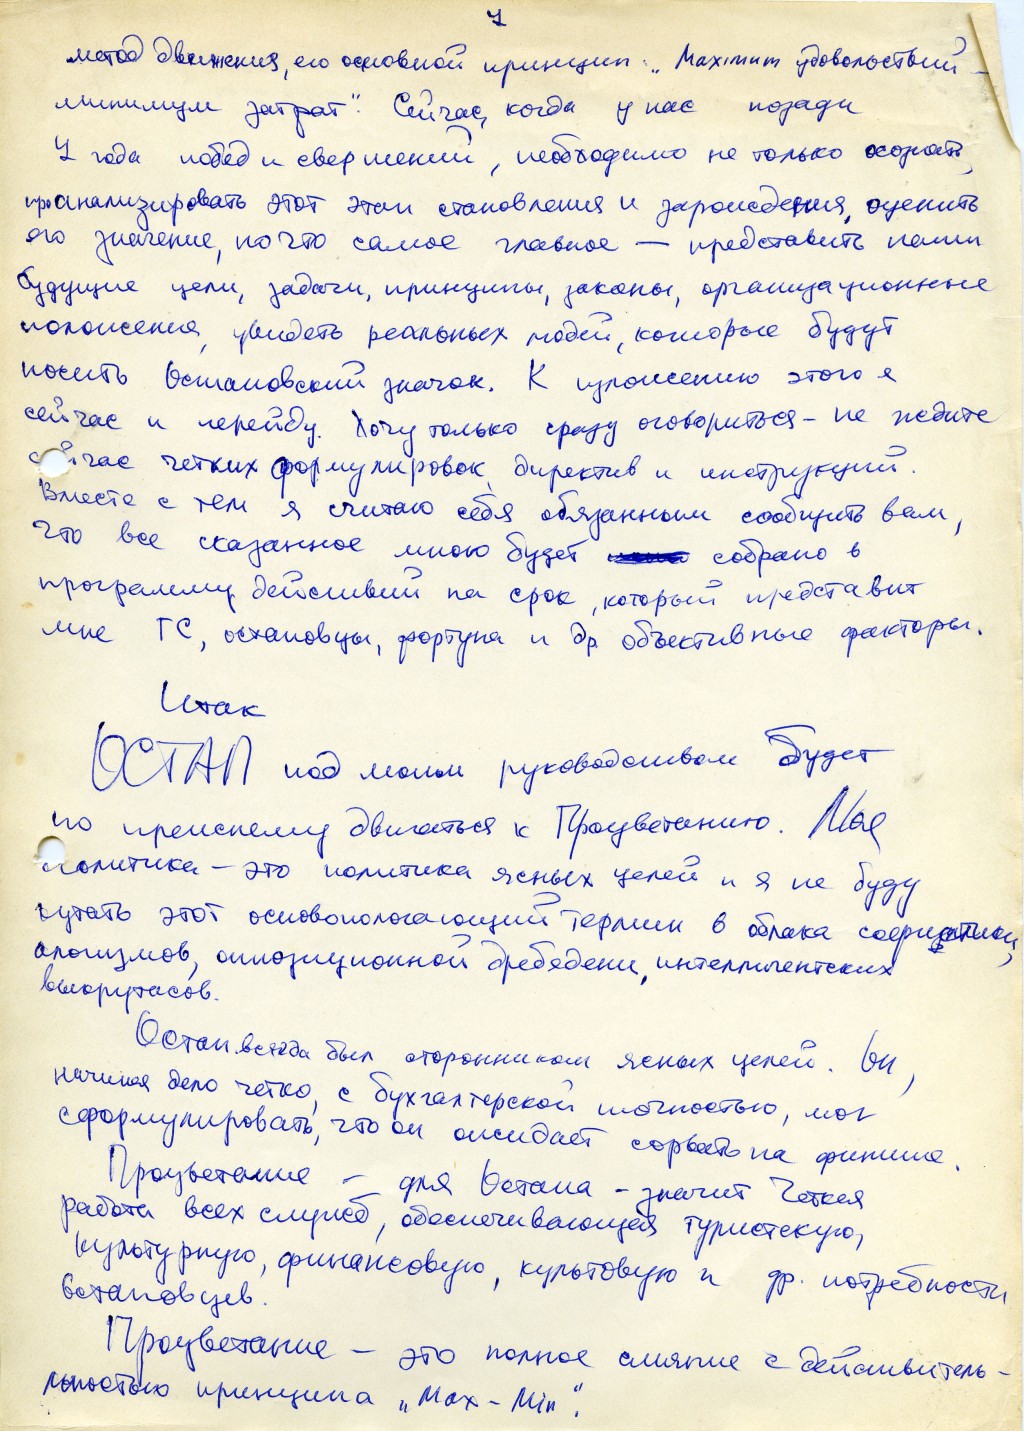 4
метод движения, его основной принцип: „Maximum удовольствий –
минимум затрат". Сейчас, когда у нас позади
4 года побед и свершений, необходимо не только
проанализировать этот этап становления и зарождения, оценить
его значение, но что самое главное — представить наши
будущие цели, задачи, принципы, законы, организационные
положения, увидеть реальных людей, которые будут
носить Остаповский значок. К изложению этого я
сейчас и перейду. Хочу только сразу оговориться – не ждите
сейчас четких формулировок, директив и инструкций.
Вместе с тем я считаю себя обязанным сообщить вам,
что все сказанное мною будет собрано в
программу действий на срок, который представит
мне ГС, остаповцы, фортуна и др. объективные факторы.
Итак
ОСТАП под моим руководством будет
по прежнему двигаться к Процветанию. Моя
политика – это политика ясных целей и я не буду
кутать этот основопологающий термин в облака
алогизмов, оппозиционной дребедени, интеллигентских
выкрутасов.
Остап всегда был сторонником ясных целей. Он,
начиная дело четко, с бухгалтерской точностью, мог
сформулировать, что он ожидает сорвать на финише.
Процветание – для Остапа – значит четкая
работа всех служб, обеспечивающая туристскую,
культурную, финансовую, культовую и др. потребности
остаповцев.
Процветание – это полное слияние с действитель-
льностью принципа „Max – Min".